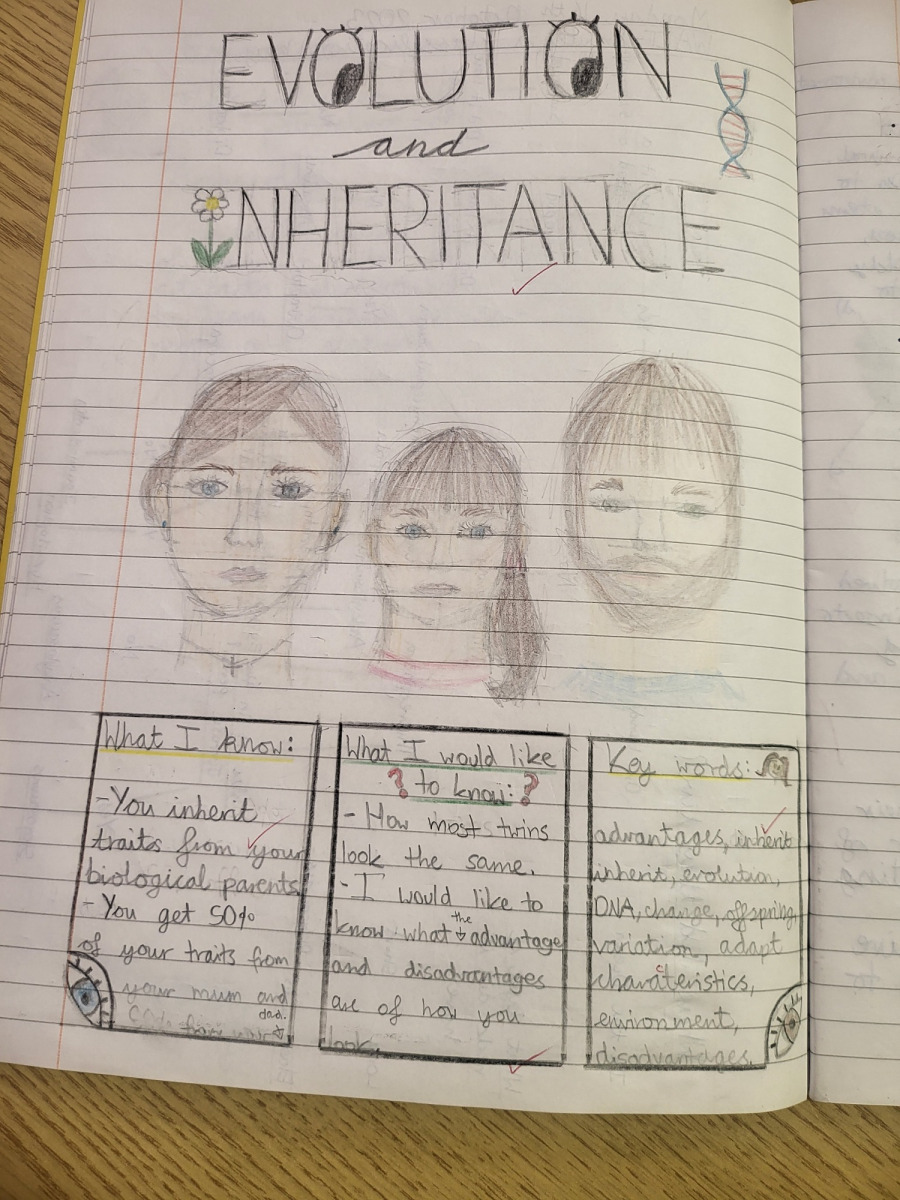 EVOLUTION
and
INHERITANCE
What I know:
-You inherit
traits from your
biological parents
- You get 50%
of your traits from
your mum and
50% from your dad.
What I would like
? to know: ?
- How most twins
look the same.
- I would like to
know what the advantage
and disadvantages
are of how you
look.
Key words:
advantages, inherit
inherit, evolution,
DNA, change, offspring,
variation, adapt
charateristics,
c
environment,
disadvantages.